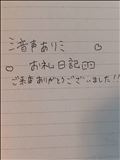 ミ音声ありミ
お札日記
ご来店ありがとうございました!!